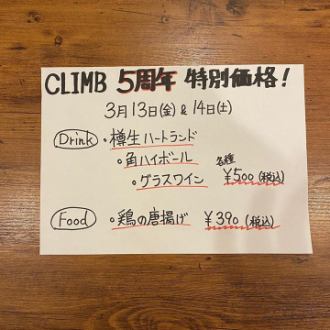 CLIMB 5周年 特別価格!
3月13日(金)&14日(土)
Drink ・樽生ハートランド
・角ハイボール 各種
・グラスワイン ¥500(税込)
Food ・鶏の唐揚げ ¥390(税込)